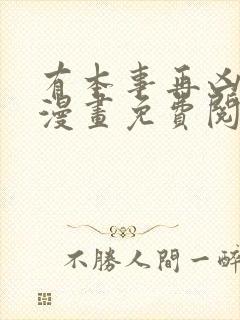 有本事再凶
漫畫免費閱
不勝人間一醉